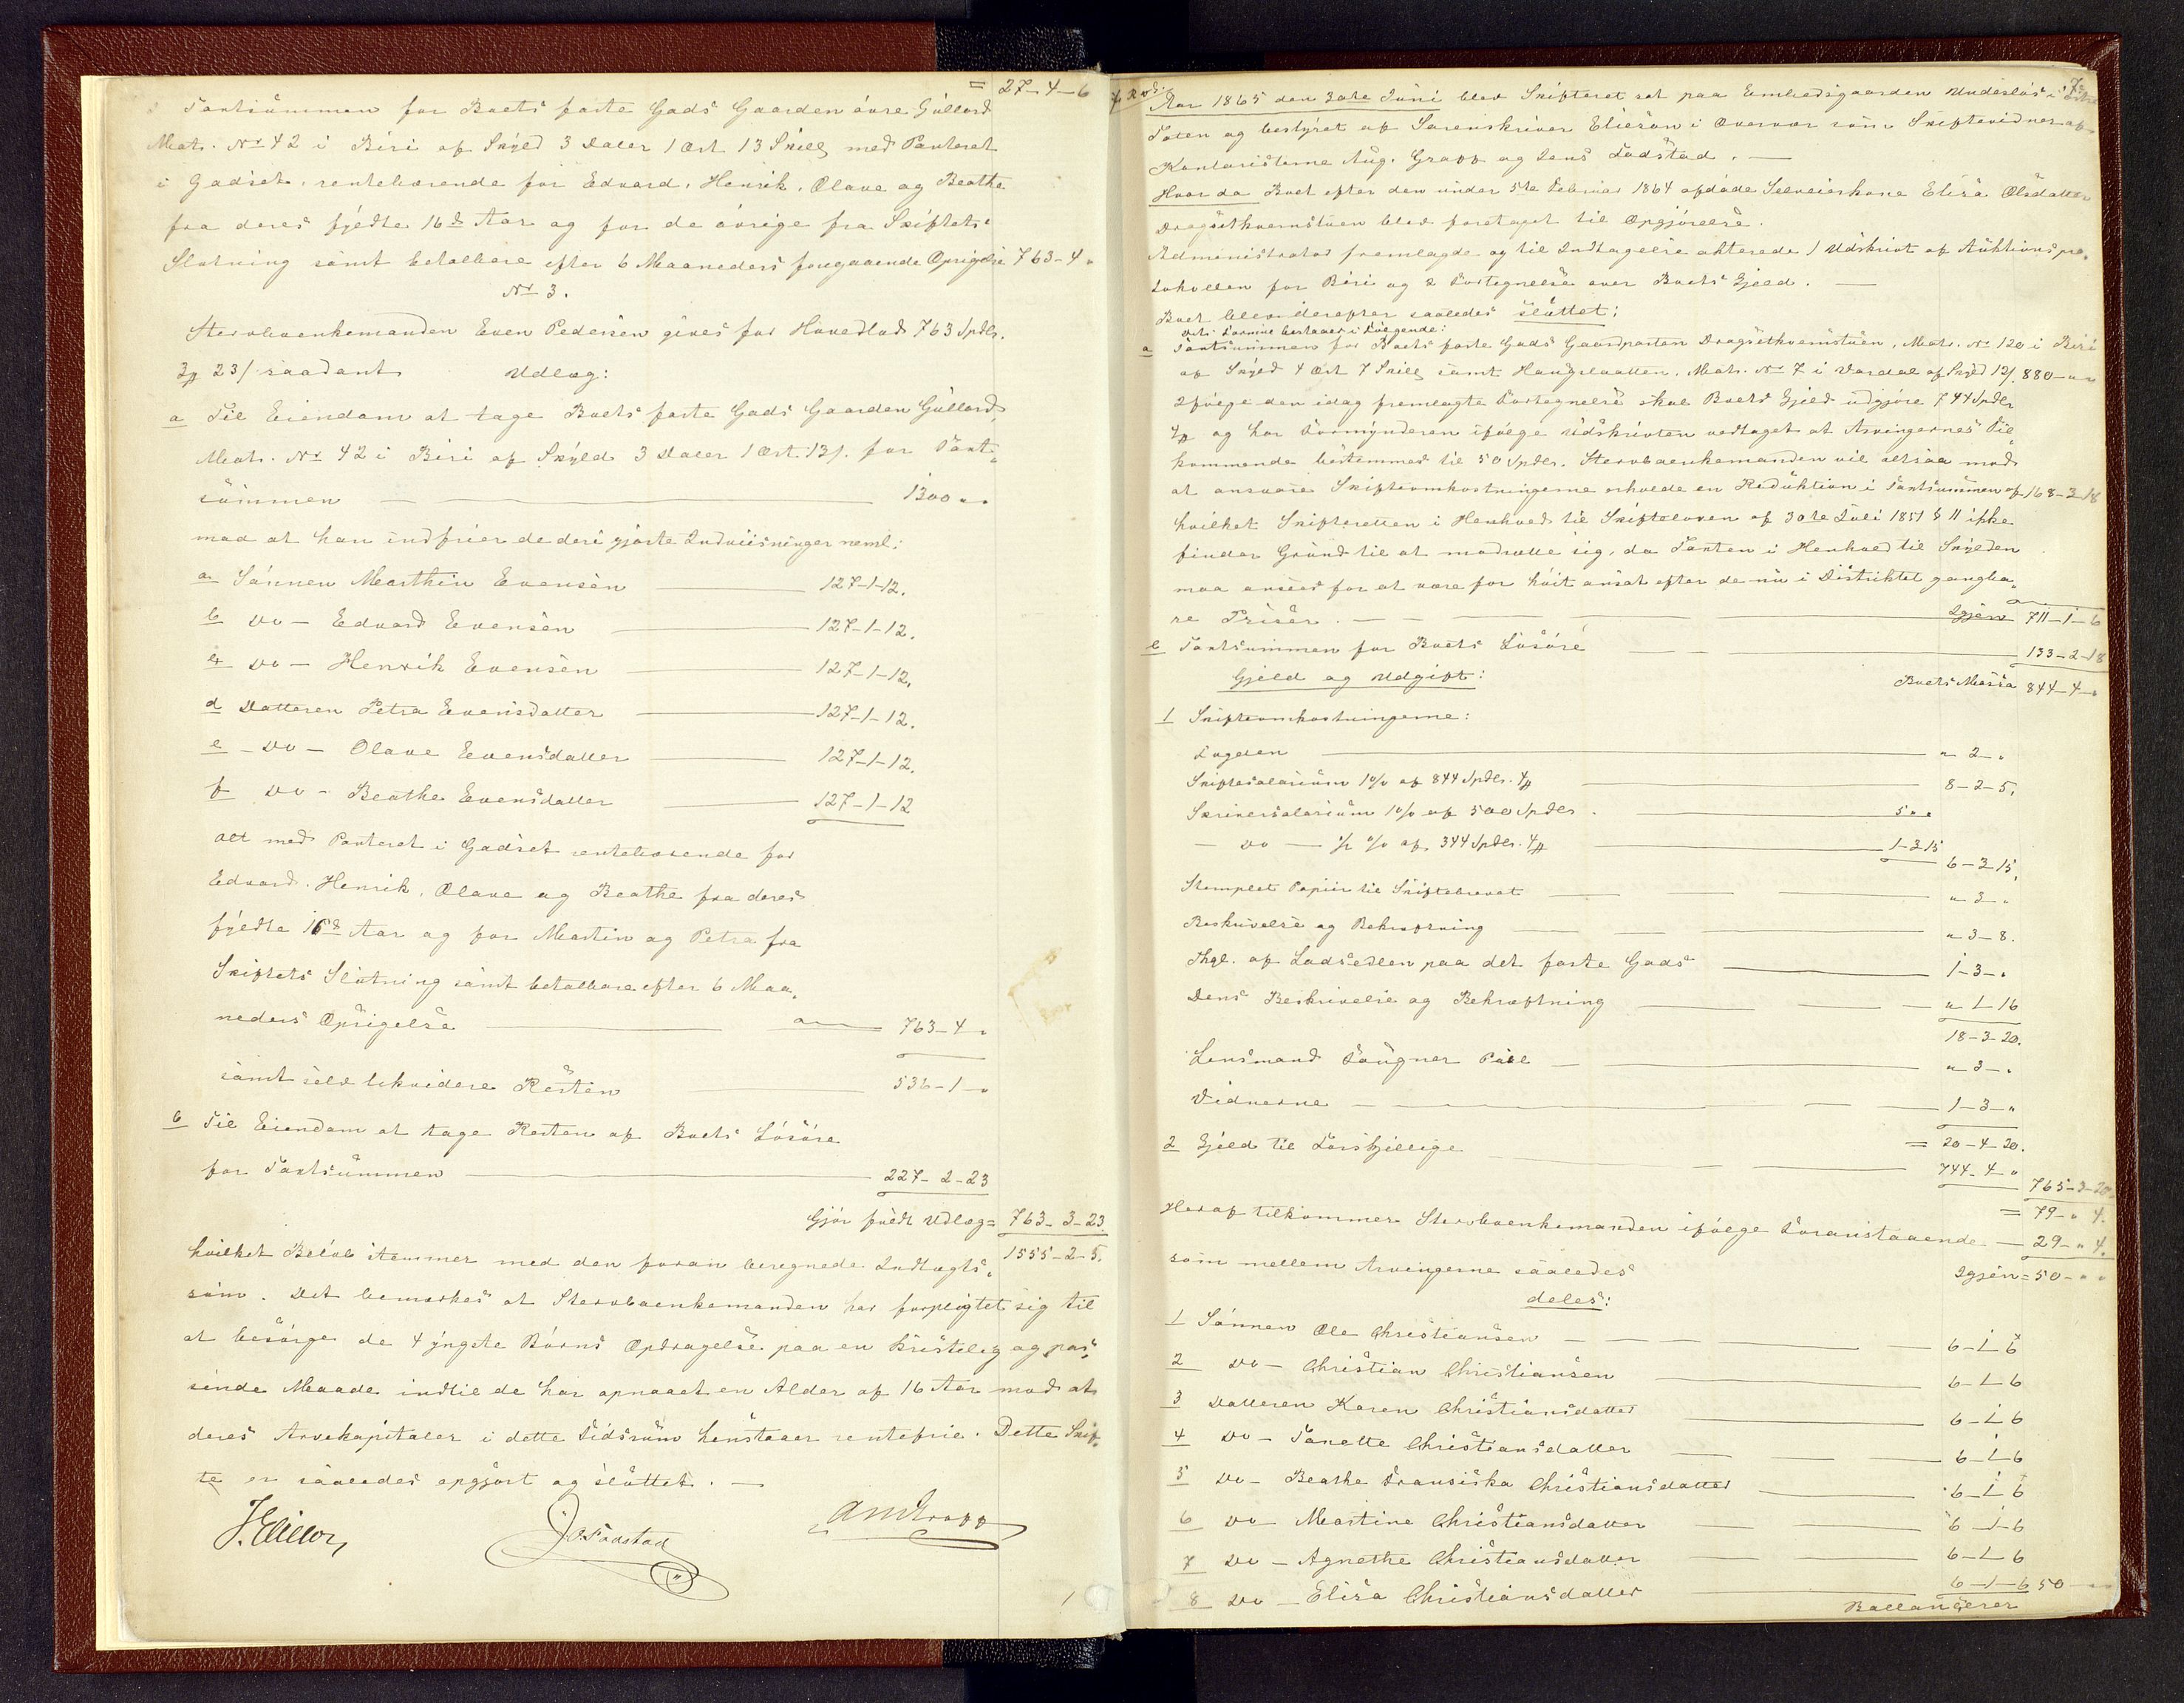 = 27-4-6
Taxtsummen for Boets faste Gods Gaarden øvre Gullord
Matr. No 42 i Biri af Skyld 3 Daler 1 Ort 13 Skill med Panteret
i Godset, rentebærende for Edvard, Henrik, Olave og Beathe
fra deres fyldte 16de Aar og for de øvrige fra Skiftets
Slutning samt betalbare efter 6 Maaneders foregaaende Opsigelse 763-4 "
No 3.
Stervboenkemanden Even Pedersen gives for Hovedlod 763 Spdlr.
3 ƺ 23/ saadant Udlæg:
a Til Eiendom at tage Boets faste Gods Gaarden Gullord,
Matr. No 42 i Biri af Skyld 3 Daler 1 Ort 13/. for Taxt-
summen — 1300 " "
mod at han indfrier de deri gjorte Indviisninger neml:
a. Sønnen Marthin Evensen — 127-1-12.
b Do - Edvard Evensen — 127-1-12.
c Do - Henrik Evensen — 127-1-12.
d Datteren Petra Evensdatter — 127-1-12.
e - Do - Olave Evensdatter — 127-1-12.
f Do - Beathe Evensdatter — 127-1-12
alt med Panteret i Godset rentebærende for
Edvard, Henrik, Olave og Beathe fra deres
fyldte 16de Aar og for Martin og Petra fra
Skiftets Slutning samt betalbare efter 6 Maa-
neders Opsigelse — 763-4 "
samt selv likvidere Resten — 536-1-"
b Til Eiendom at tage Resten af Boets Løsøre
for Taxtsummen — 227-2-23
Gjør fuldt Udlæg = 763-3-23
hvilket Beløb stemmer med den foran beregnede Indtægts- 1555-2-5.
sum. Det bemærkes at Stervboenkemanden har forpligtet sig til
at besørge de 4 yngste Børns Opdragelse paa en kristelig og pas-
sende Maade indtil de har opnaaet en Alder af 16 Aar mod at
deres Arvekapitaler i dette Tidsrum henstaaer rentefrie. Dette Skif-
te er saaledes opgjort og sluttet. —
J. Elieson J. Fodstad A M Grapp
Aar 1865 den 30te Juni blev Skifteret sat paa Embedsgaarden Undesløs i Østre
Toten og bestyret af Sorenskriver Elieson i Overvær som Skiftevidner af
Kontoristerne Aug. Grapp og Jens Fodstad. —
Hvor da Boet efter den under 5te Februar 1864 afdøde Selveierkone Elisa Olsdatter
Dragsethvernstuen blev foretaget til Opgjørelse.
Administrator fremlagde og til Indtagelse akterede 1 Udskrivt af Auktionspro-
tokollen for Biri og 2 Fortegnelse over Boets Gjeld. —
Boet blev derefter saaledes sluttet:
Dets Formue bestaaer i Følgende:
a Taxtsummen for Boets faste Gods Gaardparten Dragsethvernstuen, Matr. No 120 i Biri
af Skyld 4 Ort 7 Skill samt Haugsletten, Matr. No 7 i Vardal af Skyld 12/. 880-"-"
Ifølge den idag fremlagte Fortegnelse skal Boets Gjeld udgjøre 744 Spdlr
4 ƺ og har Formynderen ifølge Udskrivten vedtaget at Arvingernes Til-
kommende bestemmes til 50 Spdlr. Stervboenkemanden vil altsaa mod
at ansvare Skifteomkostningerne erholde en Reduktion i Taxtsummen af 168-3-18
hvilket Skifteretten i Henhold til Skifteloven af 30te Juli 1851 § 11 ikke
finder Grund til at modsætte sig, da Taxten i Henhold til Skylden
maa ansees for at være for høit ansat efter de nu i Distriktet gangba-
re Priser. — Igjen 711-1-6
b Taxtsummen for Boets Løsøre — 133-2-18
Gjeld og Udgift: Boets Massa 844-4-"
1 Skifteomkostningerne:
Fogden — " 2-"
Skiftesalarium 1% af 844 Spdlr. 4 ƺ — 8-2-5.
Skriversalarium 1% af 500 Spdlr — 5 " "
- Do - ½ % af 344 Spdlr. 4 ƺ — 1-3 15
6-3 15.
Stemplet Papiir til Skiftebrevet — " 3-"
Beskrivelse og Bekræftning — " 3-8.
Thgl. af Lodsedlen paa det faste Gods — 1-3-"
Dens Beskrivelse og Bekræftning — " 1-16
18-3-20.
Lensmand Fougner — " 3-"
Vidnerne — 1-3-"
= 20-4-20.
2 Gjeld til Forskjellige — 744-4-"
765-3-20.
= 79-" 4.
Heraf tilkommer Stervboenkemanden ifølge Foranstaaende — 29-" 4.
som mellem Arvingerne saaledes Igjen = 50-" "
deles:
1 Sønnen Ole Christiansen — 6-1-6
2 Do - Christian Christiansen — 6-1-6
3 Datteren Karen Christiansdatter — 6-1-6
4 Do - Tonette Christiansdatter — 6-1-6
5 Do - Beathe Fransiska Christiansdatter — 6-1-6
6 Do - Martine Christiansdatter — 6-1-6
7 Do - Agnethe Christiansdatter — 6-1-6
8 Do - Elisa Christiansdatter — 6-1-6 50-"-"
Ballancerer